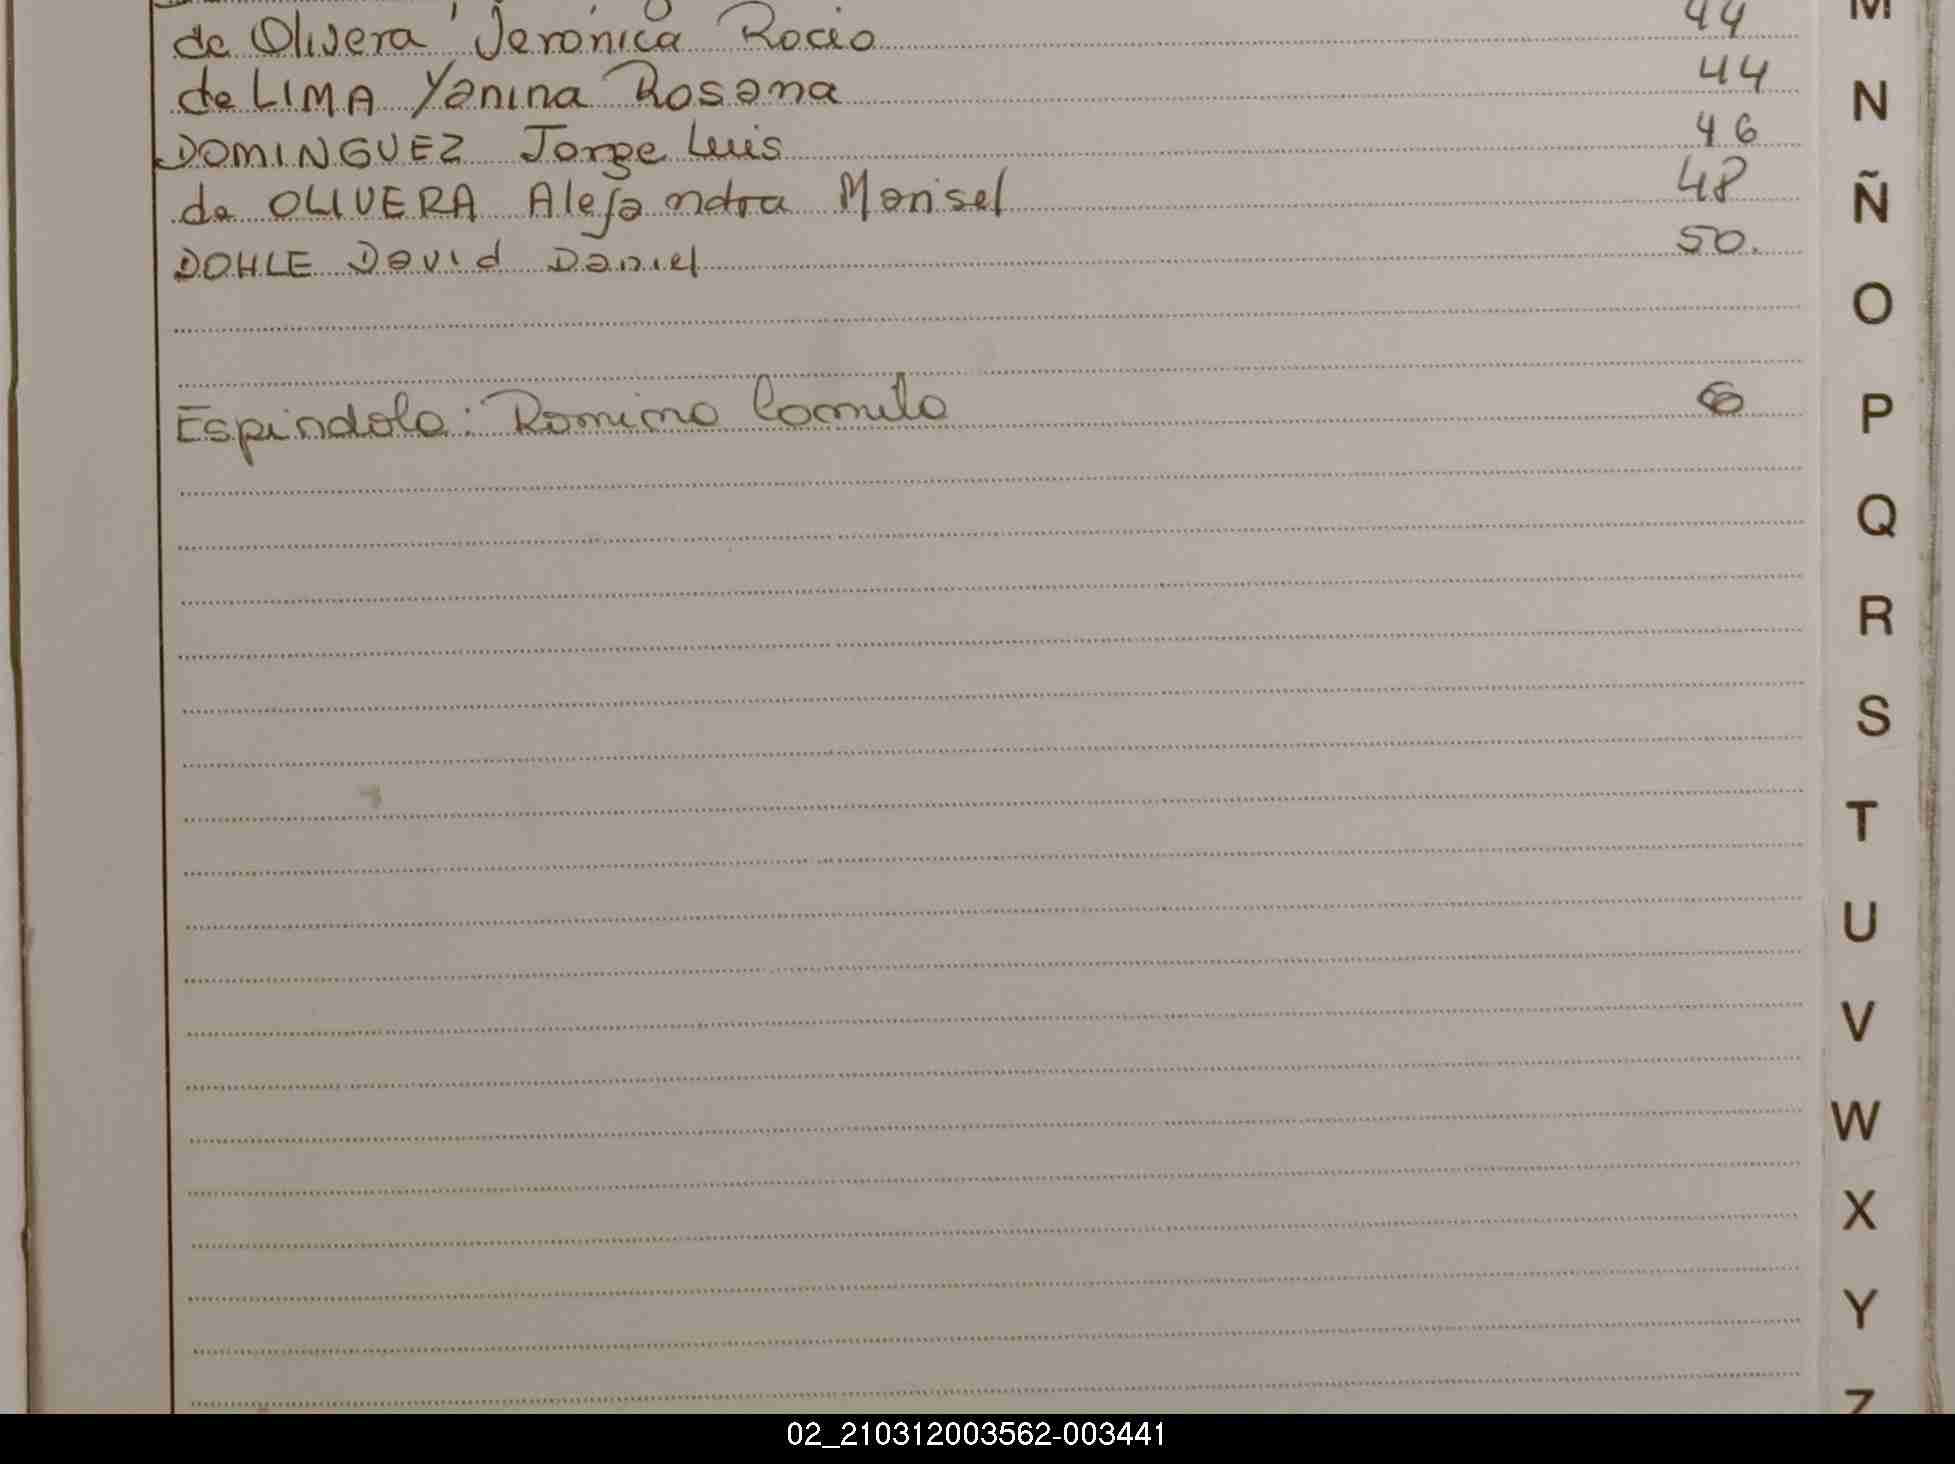 de Olivera Veronica Rocio 44
de LIMA Yanina Rosana 44
DOMINGUEZ Jorge Luis 46
de OLIVERA Alejandra Marisel 48
DOHLE David Daniel 50.
Espindola: Romina Camila 6
M
N
Ñ
O
P
Q
R
S
T
U
V
W
X
Y
Z
02_210312003562-003441